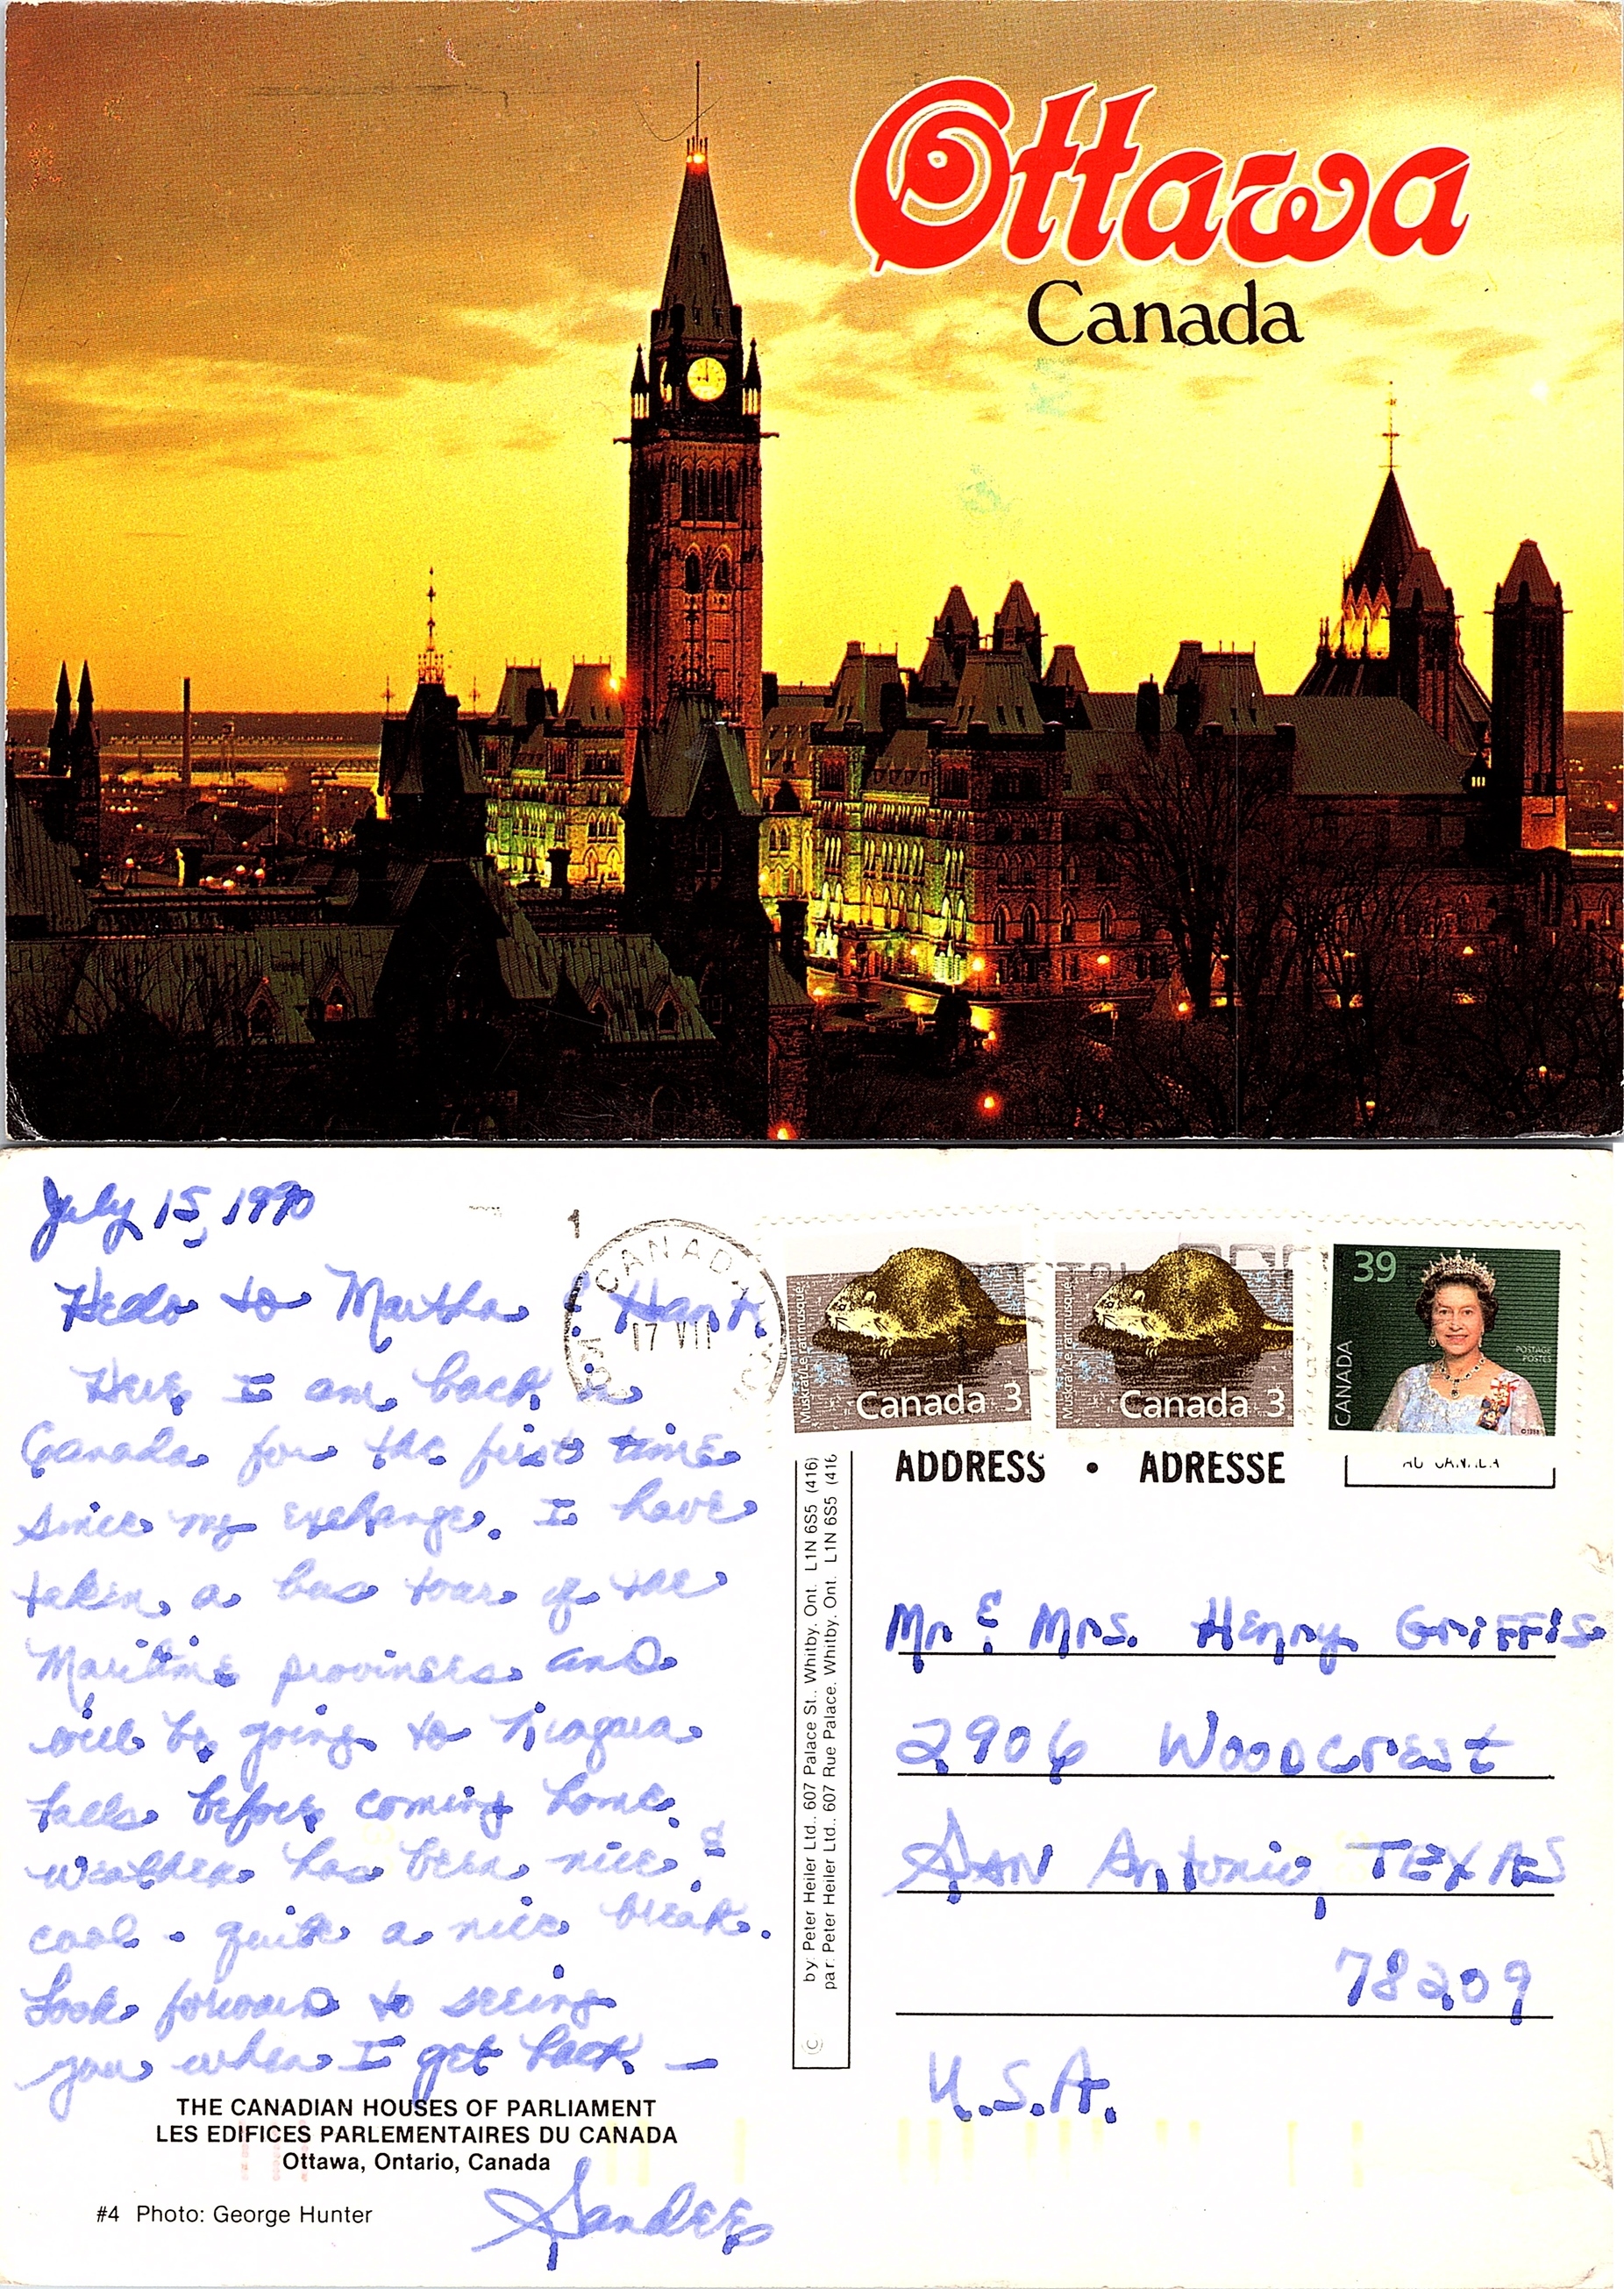 Ottawa
Canada
July 15, 1990
Hello to Martha & Hank
Here I am back in
Canada for the first time
since my exchange. I have
taken a bus tour of the
Maritime provinces and
will be going to Niagara
Falls before coming home.
Weather has been nice &
cool - quite a nice break.
Look forward to seeing
you when I get back —
Sandee
THE CANADIAN HOUSES OF PARLIAMENT
LES EDIFICES PARLEMENTAIRES DU CANADA
Ottawa, Ontario, Canada
#4 Photo: George Hunter
1
CANADA
17 VII
Muskrat/Le rat musqué
Canada 3
Muskrat/Le rat musqué
Canada 3
39
CANADA
POSTAGE
POSTES
©
by: Peter Heiler Ltd., 607 Palace St., Whitby, Ont. L1N 6S5 (416)
par: Peter Heiler Ltd., 607 Rue Palace, Whitby, Ont. L1N 6S5 (416
ADDRESS • ADRESSE
AU CANADA
Mr & Mrs. Henry Griffis
2906 Woodcrest
San Antonio, TEXAS
78209
U.S.A.